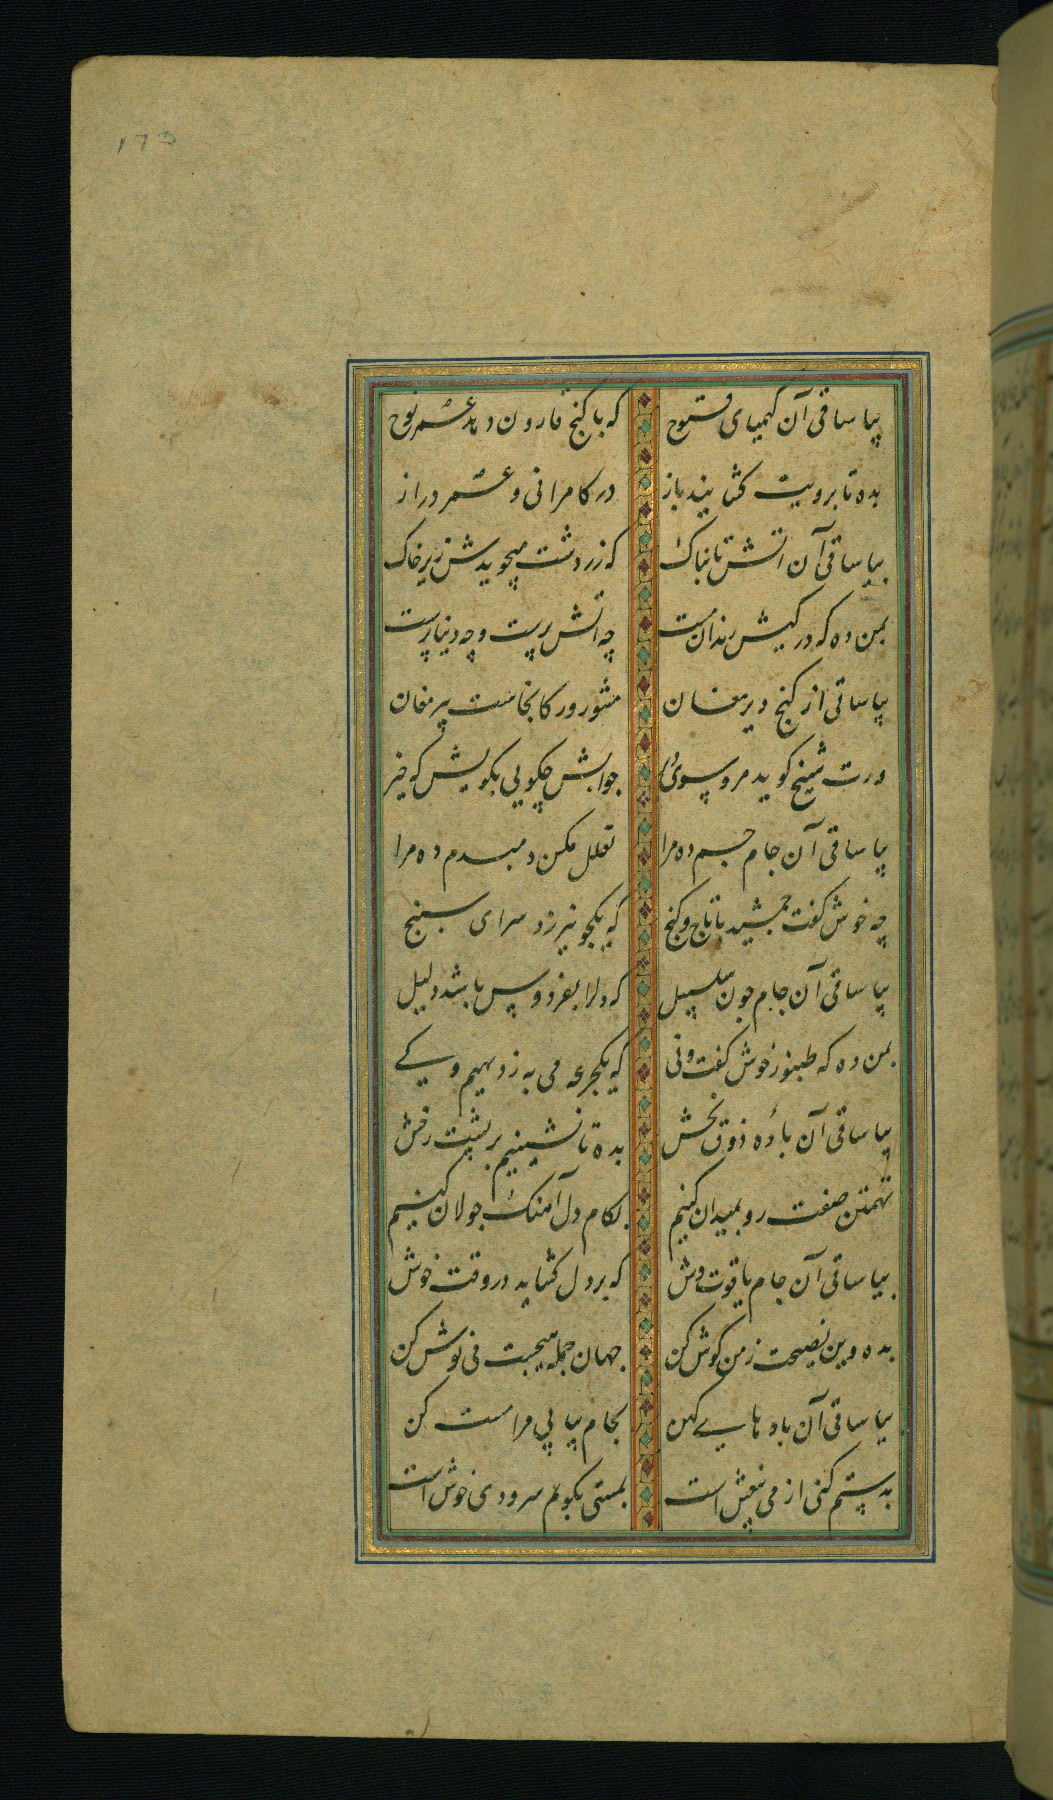 173
بیا ساقی آن کیمیای فتوح که با گنج قارون دهد عمر نوح
بده تا برویت گشایند باز در کامرانی و عمر دراز
بیا ساقی آن آتش تابناک که زردشت میجویدش زیر خاک
بمن ده که در کیش رندان مست چه آتش پرست و چه دنیا پرست
بیا ساقی از کنج دیر مغان مشو دور کانجاست پیر مغان
ورت شیخ گوید مرو سوی جوابش چگویی بگویش که خیر
بیا ساقی آن جام جم ده مرا تعلل مکن دمبدم ده مرا
چه خوش گفت جمشید با تاج و گنج که یکجو نیرزد سرای سپنج
بیا ساقی آن جام چون سلسبیل که دل را بفردوس باشد دلیل
بمن ده که طنبور خوش گفت و نی که یکجرعه می به ز دیهیم و کی
بیا ساقی آن بادهٔ ذوق بخش بده تا نشینیم بر پشت رخش
تهمتن صفت رو بمیدان کنیم بکام دل آهنگ جولان کنیم
بیا ساقی آن جام یاقوت وش که بر دل گشاید در وقت خوش
بده وین نصیحت ز من گوش کن جهان جمله هیچست می نوش کن
بیا ساقی آن بادهای کهن بجام پیاپی مرا مست کن
بدستم کنی از می بیغش است بمستی بگویم سرودی خوش است